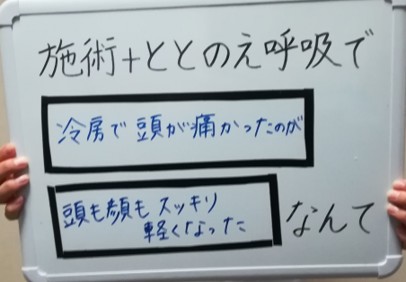 施術+ととのえ呼吸で
冷房で頭が痛かったのが
頭も顔もスッキリ
軽くなった
なんて